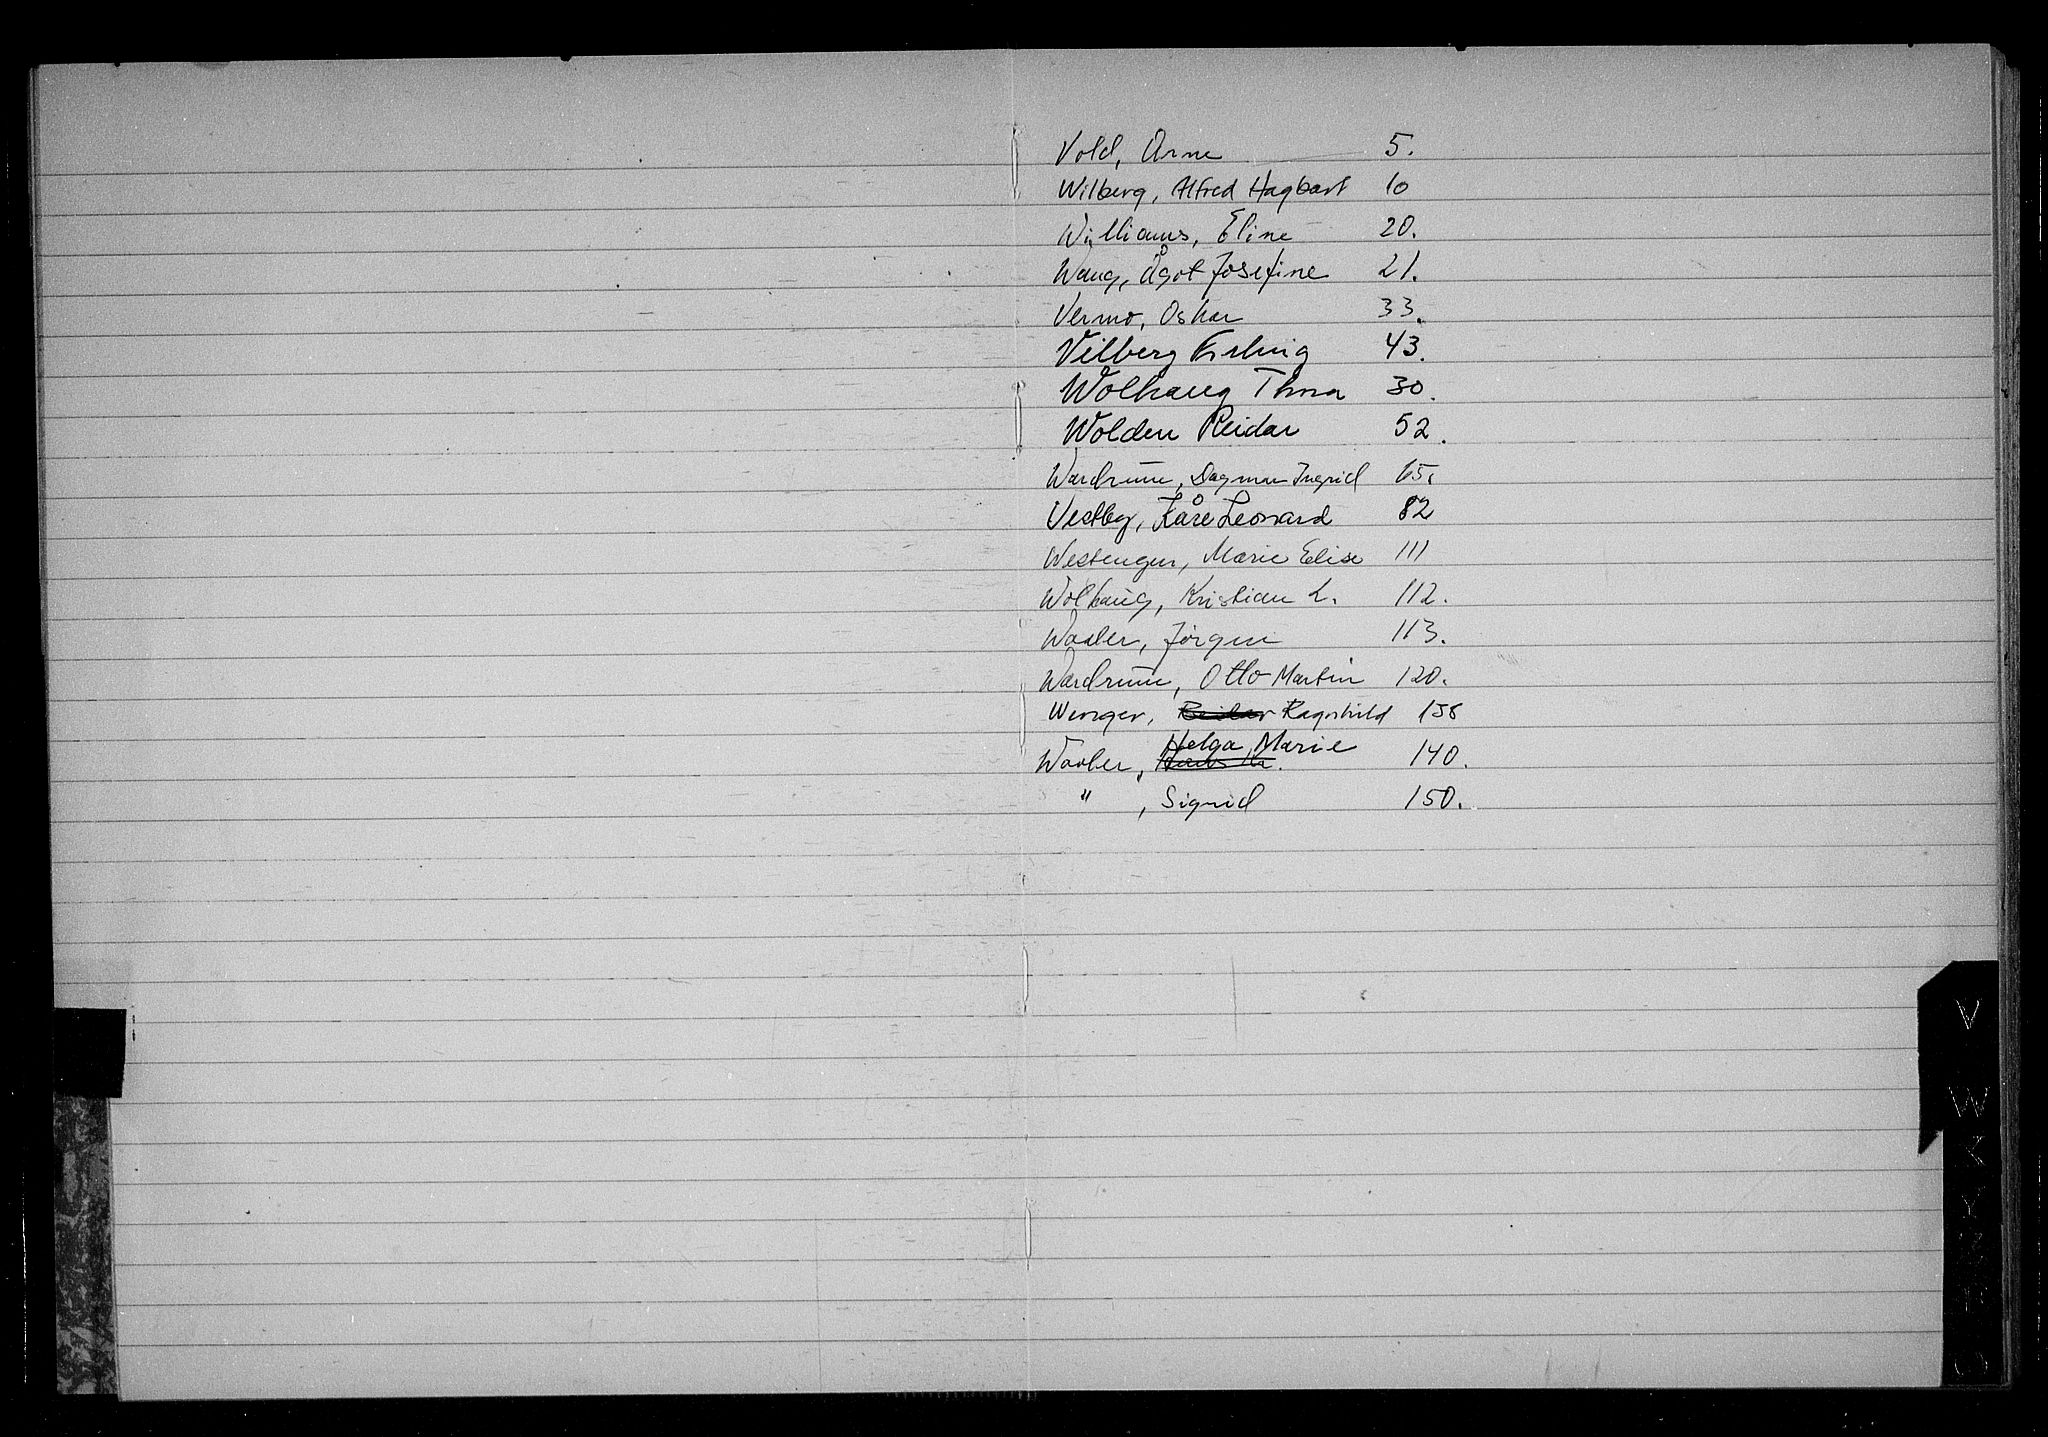 Vold, Arne 5.
Wilberg, Alfred Hagbart 10
Williams, Eline 20.
Wang, Ågot Josefine 21.
Vermo, Oskar 33.
Vilberg Erling 43.
Wolhaug Thora 30.
Wolden Reidar 52.
Wardrum, Dagmar Ingrid 65.
Vestby, Kåre Leonard 82
Westengen, Marie Elise 111
Wolhaug, Kristian L. 112.
Waaler, Jørgen 113.
Wardrum, Otto Martin 120.
Wenger, Reidar Ragnhild 138
Helga Marie
Waaler, 140.
" , Sigrid 150.
V
W